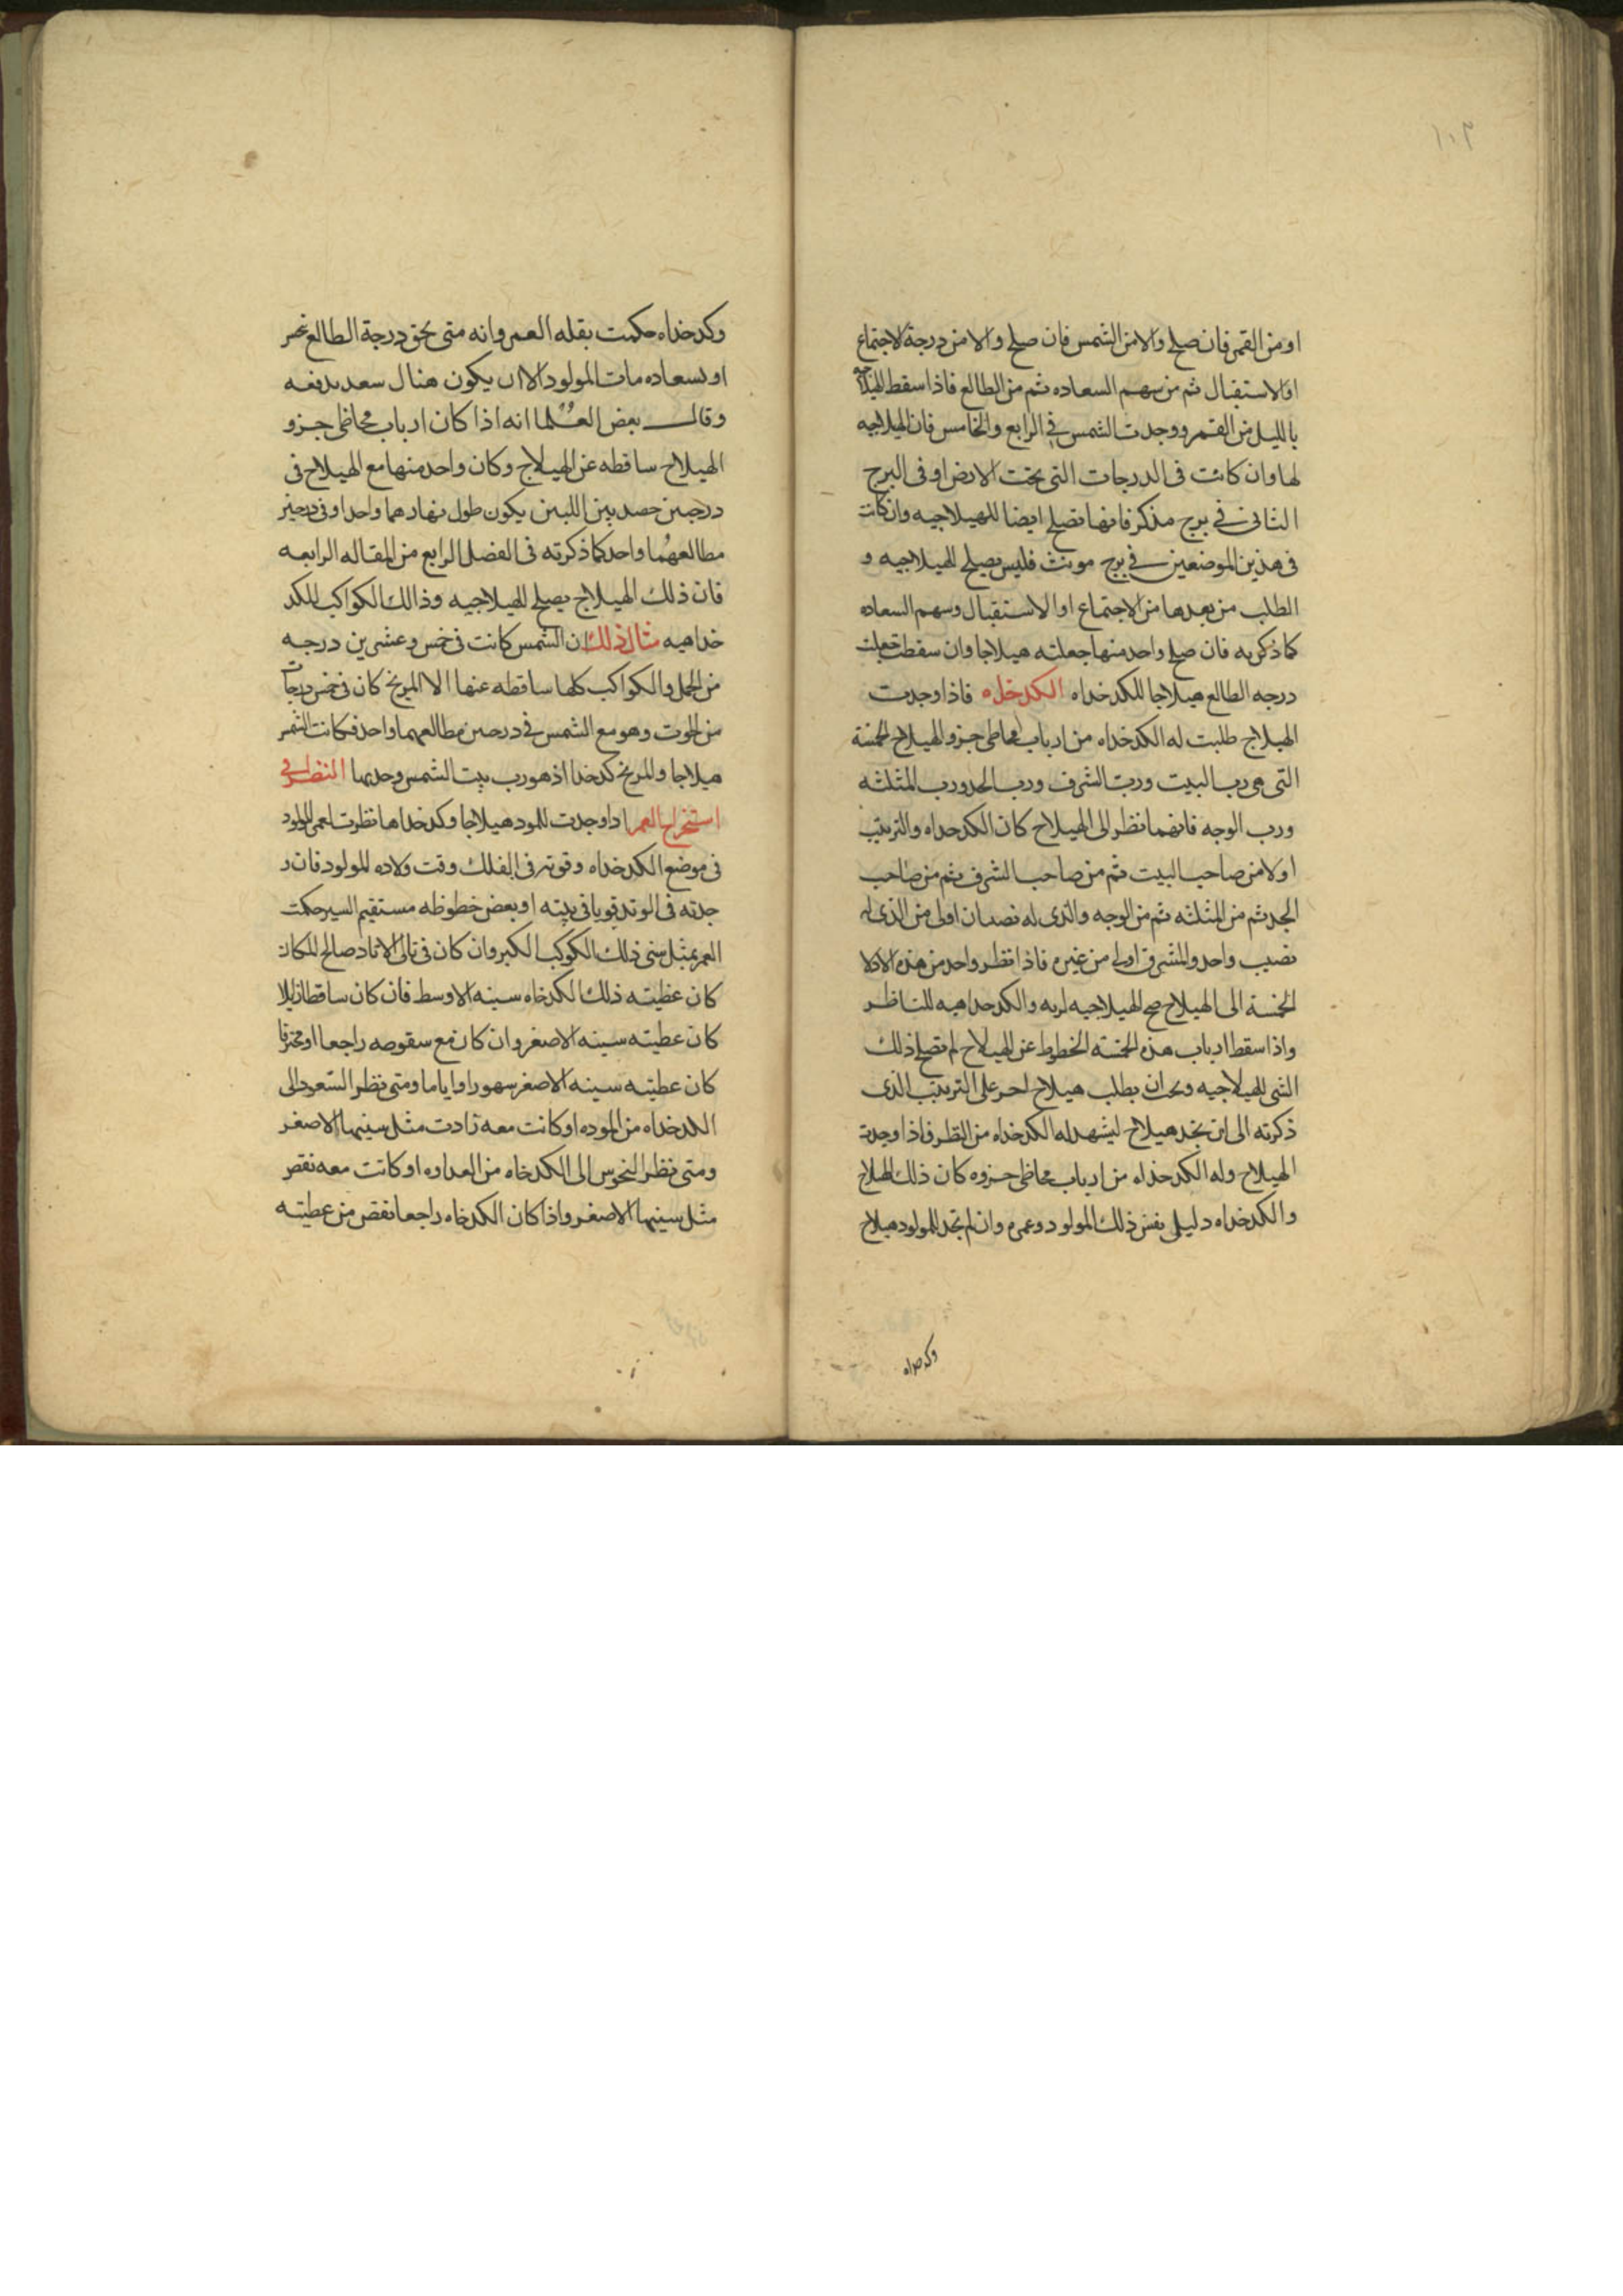 ١٠٣
او من القمر فان صلح والا من الشمس فان صلح والا من درجة الاجتماع
او الاستقبال ثم من سهم السعاده ثم من الطالع فاذا سقط الهيلاجيه
بالليل من القمر ووجدت الشمس في الرابع والخامس فان الهيلاجيه
لها وان كانت فى الدرجات التى تحت الارض او فى البرج
الثانى في برج مذكر فانها تصلح ايضا للهيلاجيه وان كانت
فى هذين الموضعين في برج مونث فليس يصلح للهيلاجيه و
الطلب من بعدها من الاجتماع او الاستقبال وسهم السعاده
كما ذكر به فان صلح واحد منها جعلته هيلاجا وان سقطت جعلت
درجه الطالع هيلاجا للكدخداه الكدخداه فاذا وجدت
الهيلاج طلبت له الكدخداه من ارباب محاظى جزو الهيلاج الخمسة
التى هى رب البيت ورب الشرف ورب الحد ورب المثلثه
ورب الوجه فانهما نظر الى الهيلاج كان الكدخداه والترتيب
اولا من صاحب البيت ثم من صاحب الشرف ثم من صاحب
الحد ثم من المثلثه ثم من الوجه والذى له نصيبان اولى من الذى له
نصيب واحد والمشرق اولى من غيره فاذا نظر واحد من هذه الادلا
الخمسة الى الهيلاج صح الهيلاجيه لربه والكدخداهيه للناظر
واذا سقط ارباب هذه الخمسة الخطوط عن الهيلاج لم تصلح ذلك
الشى للهيلاجيه ويجب ان يطلب هيلاج اخر على الترتيب الذى
ذكرته الى ان تجد هيلاج ليشهد له الكدخداه من النظر فاذا وجدت
الهيلاج وله الكدخداه من ارباب محاظى جزوه كان ذلك الهيلاج
والكدخداه دليلى نفس ذلك المولود وعمره وان لم تجد للمولود هيلاج
وكدخداه
وكدخداه حكمت بقله العمر وانه متى لحق درجة الطالع نحس
او لسعاده مات المولود الا ان يكون هنال سعد يدفعه
وقال بعض العلما انه اذا كان ارباب محاظى جزو
الهيلاج ساقطه عن الهيلاج وكان واحد منها مع الهيلاج فى
درجتين يكون طول نهارهما واحد او فى درجتين
مطالعهما واحد كما ذكرته فى الفصل الرابع من المقاله الرابعه
فان ذلك الهيلاج يصلح للهيلاجيه وذالك الكواكب للكد
خداهيه مثال ذلك ان الشمس كانت فى خمس وعشرين درجه
من الحمل والكواكب كلها ساقطه عنها الا المريخ كان فى خمس درجات
من الحوت وهو مع الشمس في درجتين مطالعهما واحد فكانت الشمس
هيلاجا والمريخ كدخدا اذ هو رب بيت الشمس وحدها النظر في
استخراج العمر اذا وجدت للمولود هيلاجا وكدخداها نظرت لعمر المولود
فى موضع الكدخداه وقوته فى الفلك وقت ولاده للمولود فان و
جدته فى الوتد قويا فى بيته او بعض خطوطه مستقيم السير حكمت
العمر بمثل سنى ذلك الكوكب الكبير وان كان فى تالى الاوتاد صالح المكان
كان عظيته ذلك الكدخاه سينه الاوسط فان كان ساقطا زايلا
كان عطيته سينه الاصغر وان كان مع سقوصه راجعا او محترقا
كان عطيته سينه الاصغر سهورا او اياما ومتى نظر السعود الى
الكدخداه من الموده او كانت معه زادت مثل سينها الاصغر
ومتى نظر النحوس الى الكدخاه من العداوه او كانت معه نقص
مثل سينها الاصغر واذا كان الكدخاه راجعا نقص من عطيته